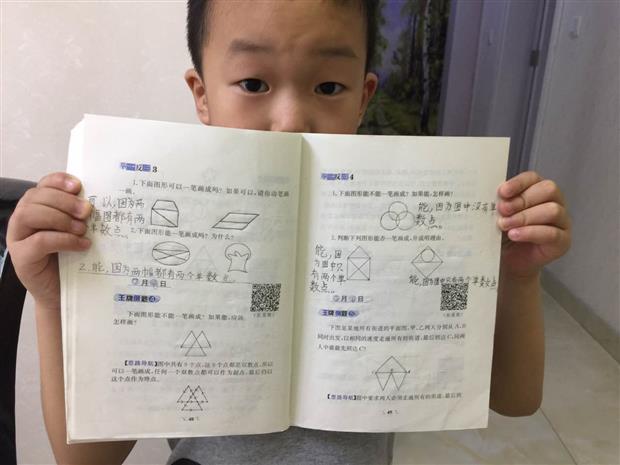 举一反三 3
1.下面图形可以一笔画成吗?如果可以,请你动笔画
一画。
可以,因为两
幅图都有两
单数点。
2.下面图形能一笔画成吗?为什么?
2.能,因为两幅都有两个单数点。
月 日
王牌例题 3
下面图形能不能一笔画成?如果能,应该
怎样画?
【思路导航】图中共有9个点,这9个点都是双数点,所以
可以一笔画成,任何一个双数点都可以作为起点,最后仍以
这个点作为终点。
48
举一反三 4
1.下面图形能不能一笔画成?如果能,怎样画?
能,因为图中没有单
数点。
2.判断下列图形能否一笔画成,并说明理由。
能,因
为图中只
有两个单
数点。
能,因为图中只有两个单数点
月 日
王牌例题
下图是某地所有街道的平面图,甲、乙两人分别从A、B
同时出发,以相同的速度走遍所有的街道,最后到达C,问两
人中谁最先到达C?
【思路导航】图中要求两人必须走遍所有的街道,最后到
49